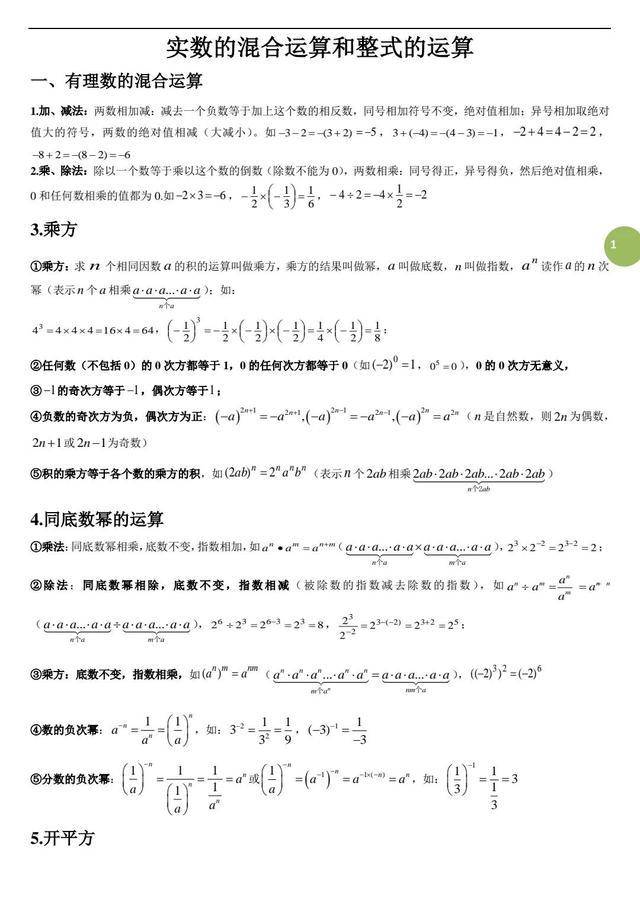 实数的混合运算和整式的运算
一、有理数的混合运算
1.加、减法：两数相加减：减去一个负数等于加上这个数的相反数，同号相加符号不变，绝对值相加；异号相加取绝对
值大的符号，两数的绝对值相减（大减小）。如 −3−2=−(3+2)=−5，3+(−4)=−(4−3)=−1，−2+4=4−2=2，
−8+2=−(8−2)=−6
2.乘、除法：除以一个数等于乘以这个数的倒数（除数不能为 0），两数相乘：同号得正，异号得负，然后绝对值相乘，
0 和任何数相乘的值都为 0.如 −2×3=−6，−1/2×(−1/3)=1/6，−4÷2=−4×1/2=−2
3.乘方
1
①乘方：求 n 个相同因数 a 的积的运算叫做乘方，乘方的结果叫做幂，a 叫做底数，n 叫做指数，a^n 读作 a 的 n 次
幂（表示 n 个 a 相乘 a·a·a...·a·a）；如：
n个a
4^3=4×4×4=16×4=64，(−1/2)^3=−1/2×(−1/2)×(−1/2)=1/4×(−1/2)=1/8；
②任何数（不包括 0）的 0 次方都等于 1，0 的任何次方都等于 0（如 (−2)^0=1，0^5=0），0 的 0 次方无意义，
③ −1 的奇次方等于 −1，偶次方等于 1；
④负数的奇次方为负，偶次方为正：(−a)^{2n+1}=−a^{2n+1},(−a)^{2n−1}=−a^{2n−1},(−a)^{2n}=a^{2n}（n 是自然数，则 2n 为偶数，
2n+1 或 2n−1 为奇数）
⑤积的乘方等于各个数的乘方的积，如 (2ab)^n=2^n a^n b^n（表示 n 个 2ab 相乘 2ab·2ab·2ab...·2ab·2ab）
n个2ab
4.同底数幂的运算
①乘法：同底数幂相乘，底数不变，指数相加，如 a^n•a^m=a^{n+m}（a·a·a...·a·a×a·a·a...·a·a），2^3×2^{−2}=2^{3−2}=2；
n个a m个a
②除法：同底数幂相除，底数不变，指数相减（被除数的指数减去除数的指数），如 a^n÷a^m=a^n/a^m=a^{m−n}
（a·a·a...·a·a÷a·a·a...·a·a），2^6÷2^3=2^{6−3}=2^3=8，2^3/2^{−2}=2^{3−(−2)}=2^{3+2}=2^5；
n个a m个a
③乘方：底数不变，指数相乘，如 (a^n)^m=a^{nm}（a^n·a^n·a^n...·a^n·a^n=a·a·a...·a·a），((−2)^3)^2=(−2)^6
m个a^n nm个a
④数的负次幂：a^{−n}=1/a^n=(1/a)^n，如：3^{−2}=1/3^2=1/9，(−3)^{−1}=1/−3
⑤分数的负次幂：(1/a)^{−n}=1/(1/a)^n=1/(1/a^n)=a^n 或 (1/a)^{−n}=(a^{−1})^{−n}=a^{−1×(−n)}=a^n，如：(1/3)^{−1}=1/(1/3)=3
5.开平方